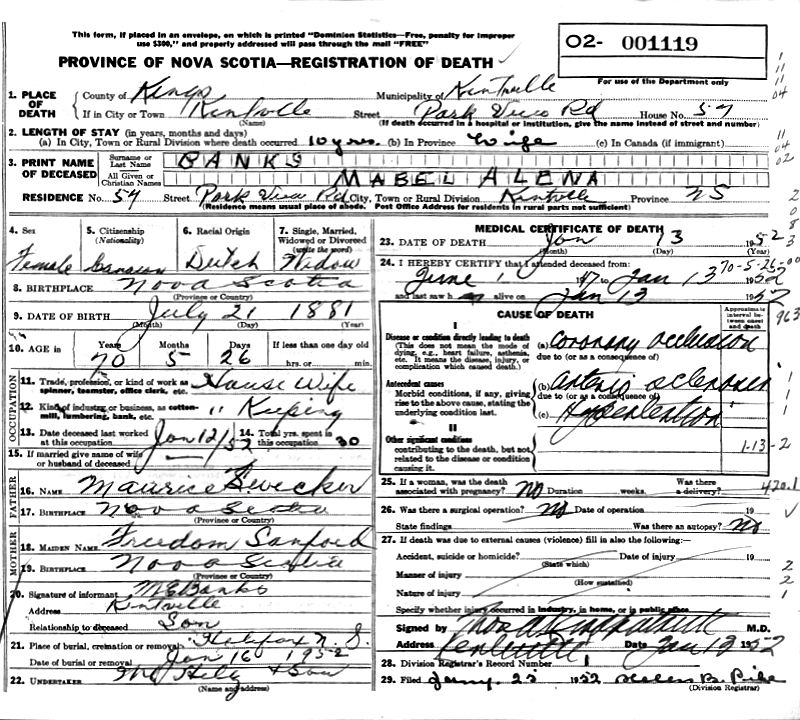 This form, if placed in an envelope, on which is printed "Dominion Statistics—Free, penalty for improper
use $300," and properly addressed will pass through the mail "FREE"
O2- 001119
For use of the Department only
PROVINCE OF NOVA SCOTIA—REGISTRATION OF DEATH
1. PLACE OF DEATH
County of Kings Municipality of Kentville
If in City or Town Kentville Street Park View Rd House No. 54
(Name) (If death occurred in a hospital or institution, give the name instead of street and number)
2. LENGTH OF STAY (in years, months and days)
(a) In City, Town or Rural Division where death occurred 10 yrs. (b) In Province Life (c) In Canada (if immigrant)
3. PRINT NAME OF DECEASED
Surname or Last Name BANKS
All Given or Christian Names MABEL ALENA
RESIDENCE No. 54 Street Park View Rd City, Town or Rural Division Kentville Province NS
(Residence means usual place of abode. Post Office Address for residents in rural parts not sufficient)
4. Sex Female
5. Citizenship (Nationality) Canadian
6. Racial Origin Dutch
7. Single, Married, Widowed or Divorced (write the word) Widow
8. BIRTHPLACE Nova Scotia
(Province or Country)
9. DATE OF BIRTH July 21 1881
(Month) (Day) (Year)
10. AGE in Years 70 Months 5 Days 26 If less than one day old
hrs. or min.
OCCUPATION
11. Trade, profession, or kind of work as spinner, teamster, office clerk, etc. House Wife
12. Kind of industry or business, as cotton-mill, lumbering, bank, etc. " Keeping
13. Date deceased last worked at this occupation Jan 12/52 14. Total yrs. spent in this occupation 30
15. If married give name of wife or husband of deceased
FATHER
16. NAME Maurice
17. BIRTHPLACE Nova Scotia
(Province or Country)
MOTHER
18. MAIDEN NAME Freedom Sanford
19. BIRTHPLACE Nova Scotia
(Province or Country)
20. Signature of informant M E Banks
Address Kentville
Relationship to deceased Son
21. Place of burial, cremation or removal Halifax N.S.
Date of burial or removal Jan 16 1952
22. UNDERTAKER & Son
(Name and address)
MEDICAL CERTIFICATE OF DEATH
23. DATE OF DEATH Jan 13 1952
(Month) (Day)
24. I HEREBY CERTIFY that I attended deceased from:
June 1 47 to Jan 13 1952
70-5-26-00
and last saw h er alive on Jan 13 1952
CAUSE OF DEATH
Approximate interval between onset and death
963
I
Disease or condition directly leading to death
(This does not mean the mode of dying, e.g., heart failure, asthenia, etc. It means the disease, injury, or complication which caused death.)
(a) Coronary occlusion
due to (or as a consequence of)
Antecedent causes
Morbid conditions, if any, giving rise to the above cause, stating the underlying condition last.
(b) arterio sclerosis
due to (or as a consequence of)
(c) Hypertension
II
Other significant conditions
contributing to the death, but not related to the disease or condition causing it.
1-13-2
25. If a woman, was the death associated with pregnancy? No Duration weeks. Was there a delivery?
420.1
26. Was there a surgical operation? No Date of operation 19
State findings Was there an autopsy? No
27. If death was due to external causes (violence) fill in also the following:—
Accident, suicide or homicide? Date of injury 19
(State which)
Manner of injury
(How sustained)
Nature of injury
Specify whether injury occurred in industry, in home, or in public place
Signed by M.D.
Address Kentville Date Jan 13 1952
28. Division Registrar's Record Number 1
29. Filed Jany. 23 1952 Helen B. Pike
(Division Registrar)